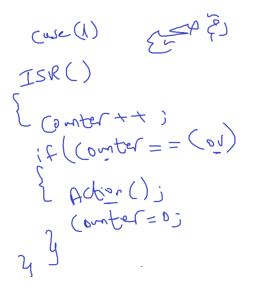 Case(1) رقم صحيح
ISR()
{
Counter++;
if(Counter==Cov)
{
Action();
Counter=0;
}
}